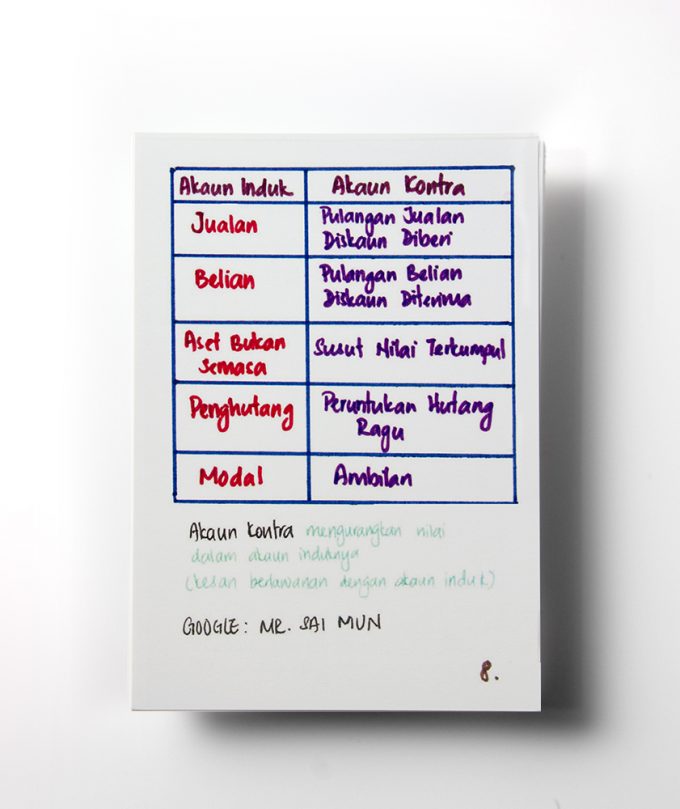 Akaun Induk
Akaun Kontra
Jualan
Pulangan Jualan
Diskaun Diberi
Belian
Pulangan Belian
Diskaun Diterima
Aset Bukan
Semasa
Susut Nilai Terkumpul
Penghutang
Peruntukan Hutang
Ragu
Modal
Ambilan
Akaun kontra mengurangkan nilai
dalam akaun induknya
(kesan berlawanan dengan akaun induk)
GOOGLE: MR. SAI MUN
8.